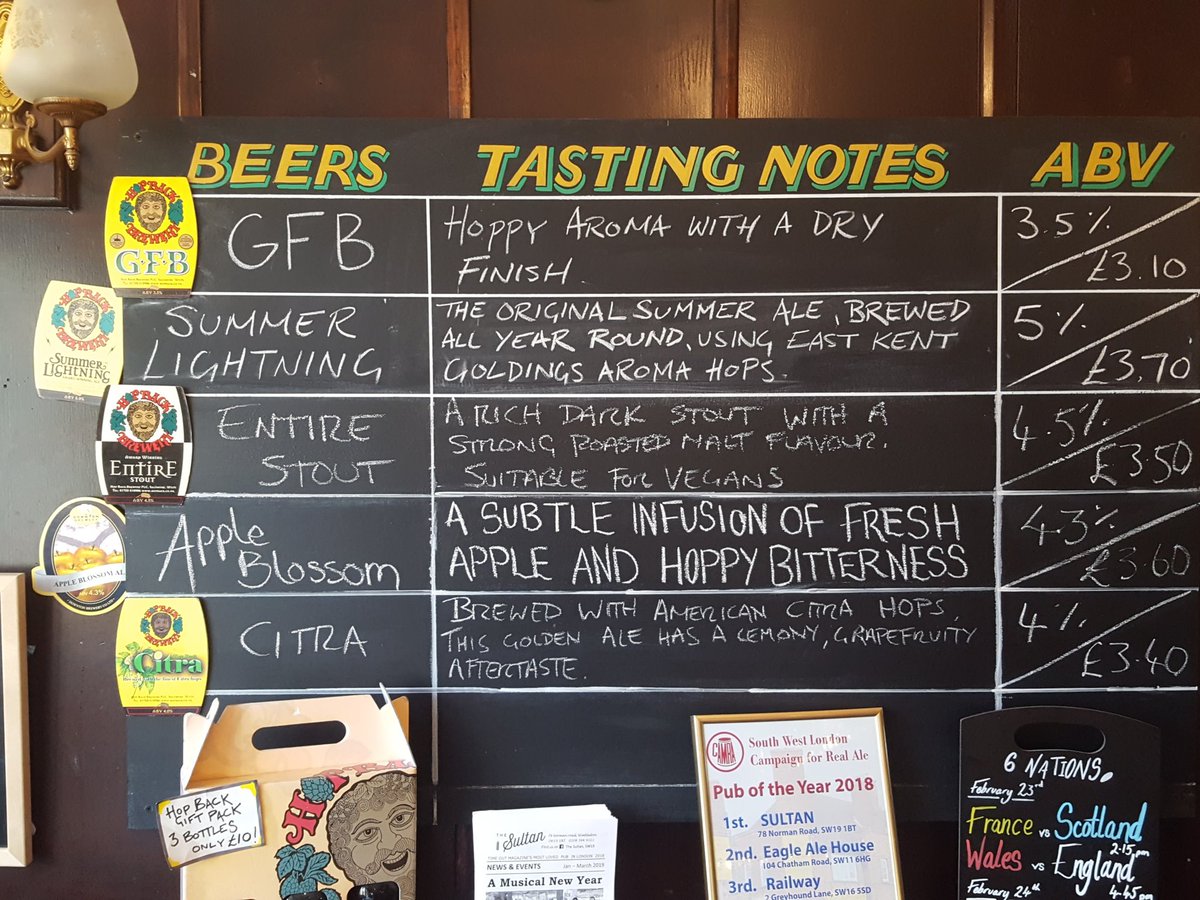 BEERS TASTING NOTES ABV
HOP BACK
BREWERY
G.F.B
GFB
HOPPY AROMA WITH A DRY
FINISH.
3.5%
£3.10
HOP BACK
BREWERY
SUMMER
LIGHTNING
SUMMER
LIGHTNING
THE ORIGINAL SUMMER ALE, BREWED
ALL YEAR ROUND, USING EAST KENT
GOLDINGS AROMA HOPS.
5%
£3.70
HOP BACK
BREWERY
AWARD WINNING
ENTIRE
STOUT
ENTIRE
STOUT
A RICH DARK STOUT WITH A
STRONG ROASTED MALT FLAVOUR.
SUITABLE FOR VEGANS
4.5%
£3.50
APPLE BLOSSOM AL
ABV 4.3%
Apple
Blossom
A SUBTLE INFUSION OF FRESH
APPLE AND HOPPY BITTERNESS
4.3%
£3.60
Citra
ABV 4.0%
CITRA
BREWED WITH AMERICAN CITRA HOPS,
THIS GOLDEN ALE HAS A LEMONY, GRAPEFRUITY
AFTERTASTE.
4%
£3.40
HOP BACK
GIFT PACK
3 BOTTLES
ONLY £10!
THE Sultan
TIME OUT MAGAZINE'S MOST LOVED PUB IN LONDON 2018
NEWS & EVENTS Jan - March 2019
A Musical New Year
CAMRA
South West London
Campaign for Real Ale
Pub of the Year 2018
1st. SULTAN
78 Norman Road, SW19 1BT
2nd. Eagle Ale House
104 Chatham Road, SW11 6HG
3rd. Railway
2 Greyhound Lane, SW16 5SD
6 NATIONS.
February 23rd
France vs Scotland
2-15pm
Wales vs England
4-45pm
February 24th